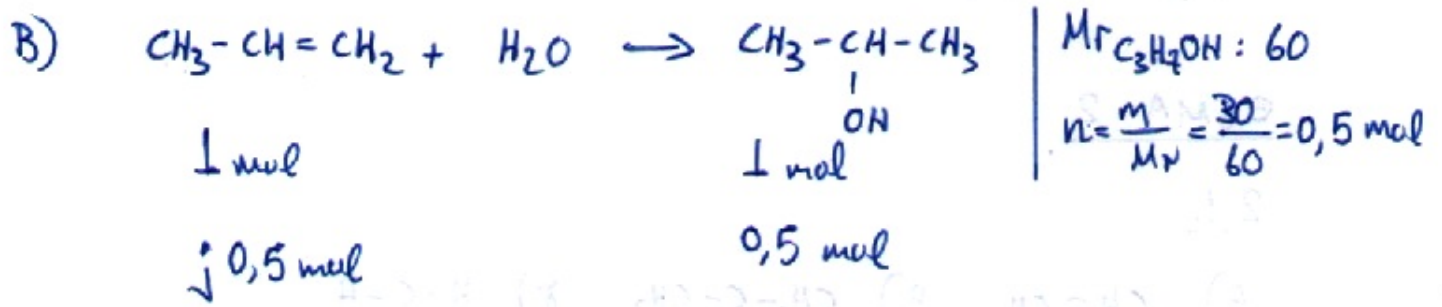 B) CH₃-CH=CH₂ + H₂O → CH₃-CH-CH₃
OH
1 mol 1 mol
j 0,5 mol 0,5 mol
Mr C₃H₇OH : 60
n = m/Mr = 30/60 = 0,5 mol